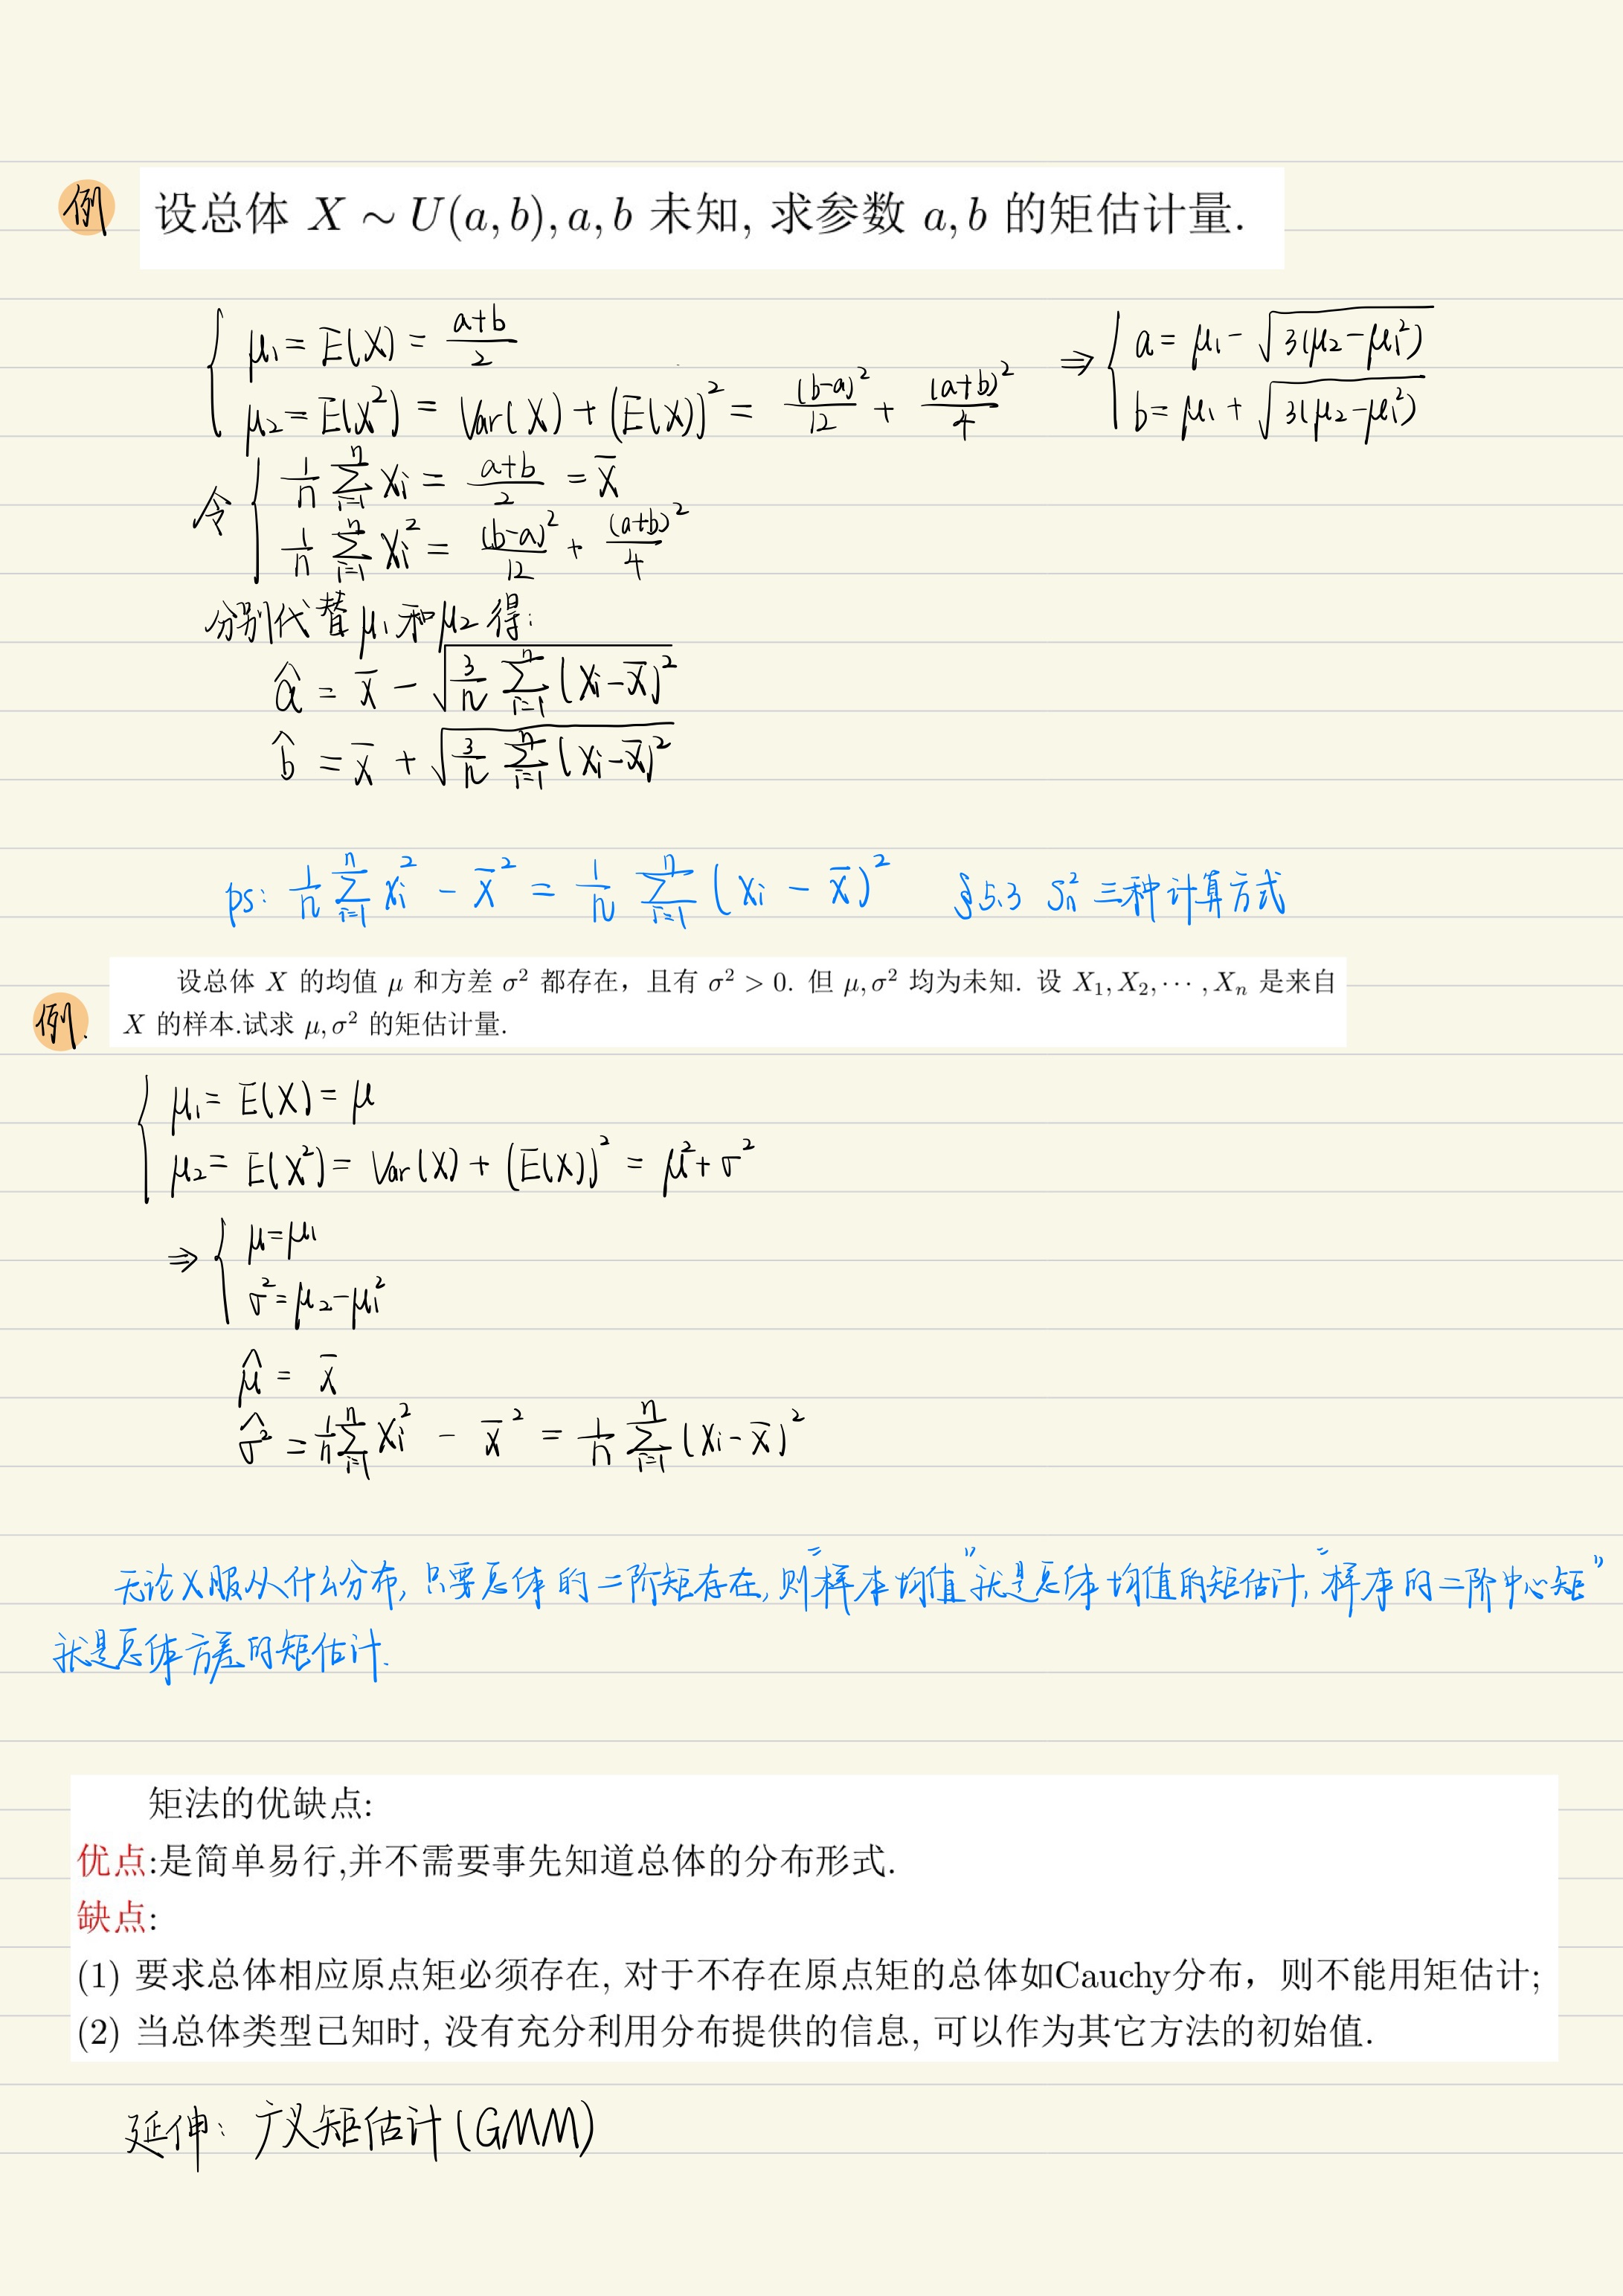 例 设总体 X ∼ U(a, b), a, b 未知, 求参数 a, b 的矩估计量.
{ μ₁ = E(X) = (a+b)/2 ⇒ { a = μ₁ − √(3(μ₂−μ₁²))
μ₂ = E(X²) = Var(X) + (E(X))² = (b−a)²/12 + (a+b)²/4 b = μ₁ + √(3(μ₂−μ₁²))
令 { 1/n ∑_{i=1}^{n} Xi = (a+b)/2 = X̄
1/n ∑_{i=1}^{n} Xi² = (b−a)²/12 + (a+b)²/4
分别代替 μ₁ 和 μ₂ 得:
â = X̄ − √(3/n ∑_{i=1}^{n} (Xi−X̄)²)
b̂ = X̄ + √(3/n ∑_{i=1}^{n} (Xi−X̄)²)
ps: 1/n ∑_{i=1}^{n} Xi² − X̄² = 1/n ∑_{i=1}^{n} (Xi − X̄)² §5.3 Sn² 三种计算方式
例. 设总体 X 的均值 μ 和方差 σ² 都存在，且有 σ² > 0. 但 μ, σ² 均为未知. 设 X₁, X₂, ⋯ , Xₙ 是来自
X 的样本.试求 μ, σ² 的矩估计量.
{ μ₁ = E(X) = μ
μ₂ = E(X²) = Var(X) + (E(X))² = μ² + σ²
⇒ { μ = μ₁
σ² = μ₂ − μ₁²
μ̂ = X̄
σ̂² = 1/n ∑_{i=1}^{n} Xi² − X̄² = 1/n ∑_{i=1}^{n} (Xi − X̄)²
无论X服从什么分布, 只要总体的二阶矩存在, 则"样本均值"就是总体均值的矩估计, "样本的二阶中心矩"
就是总体方差的矩估计.
矩法的优缺点:
优点:是简单易行,并不需要事先知道总体的分布形式.
缺点:
(1) 要求总体相应原点矩必须存在, 对于不存在原点矩的总体如Cauchy分布，则不能用矩估计;
(2) 当总体类型已知时, 没有充分利用分布提供的信息, 可以作为其它方法的初始值.
延伸: 广义矩估计 (GMM)